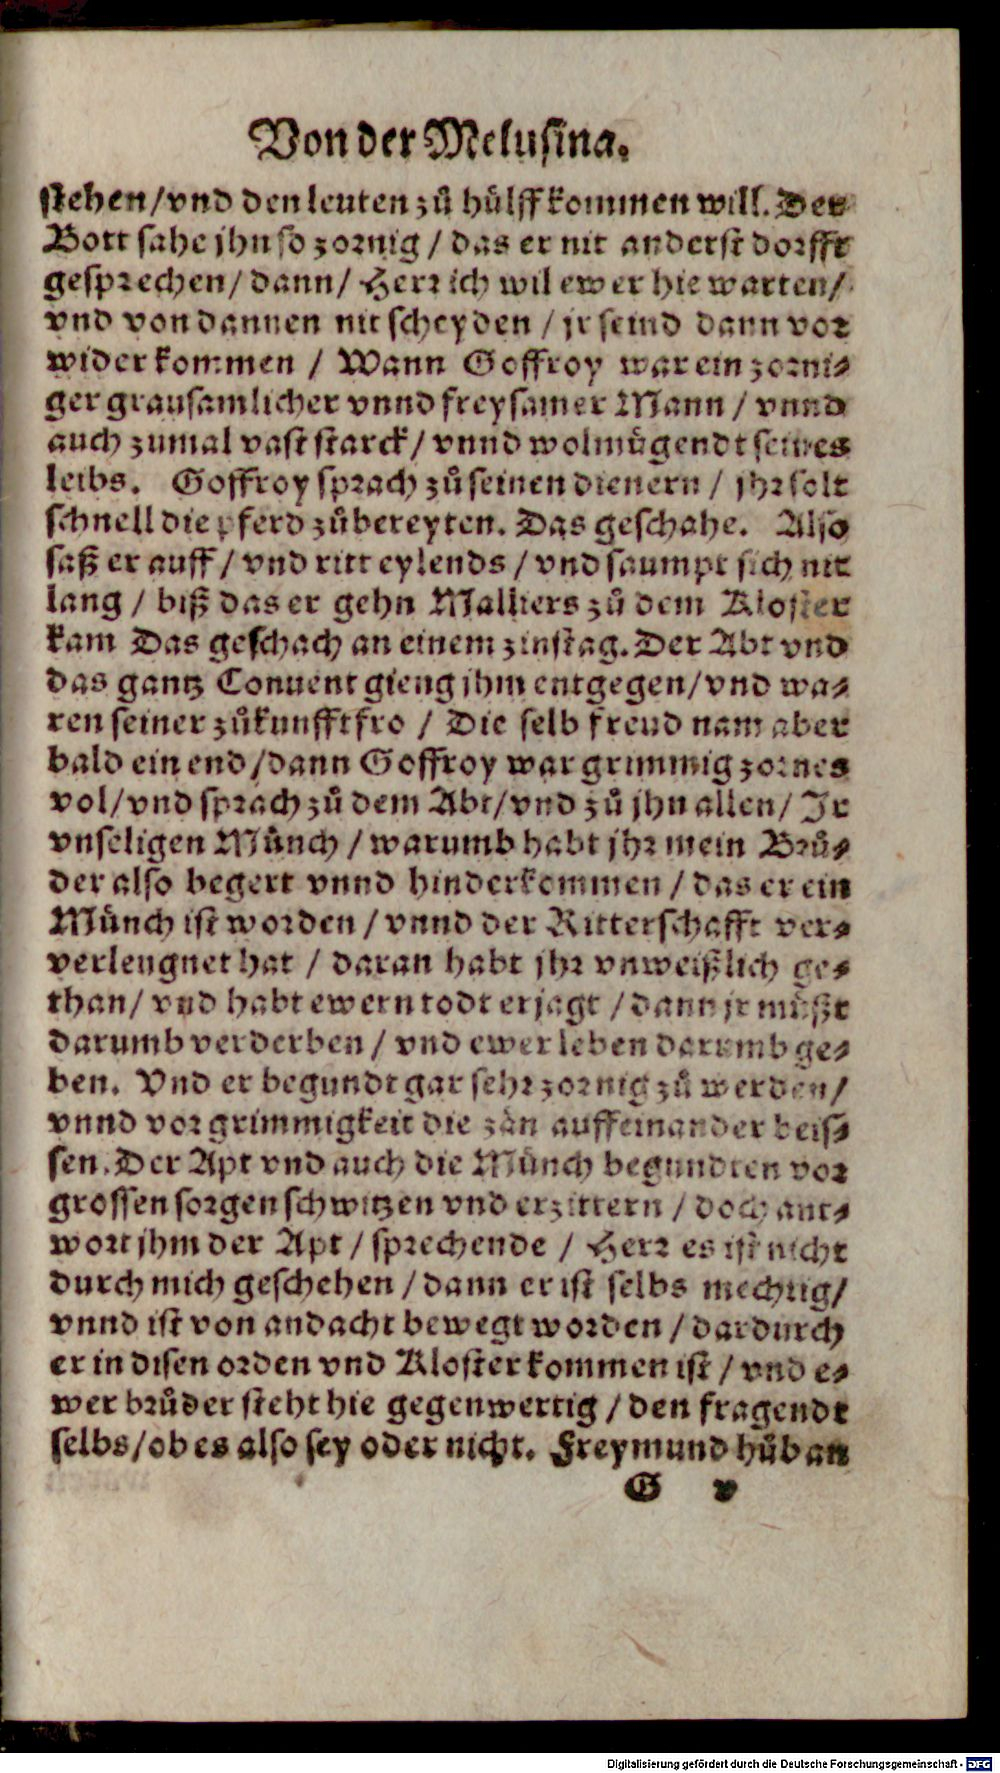 Von der Melusina.
stehen / vnd den leuten zů hülff kommen will. Der
Bott sahe jhn so zornig / das er nit anderst dorfft
gesprechen / dann / Herr ich wil ewer hie warten /
vnd von dannen nit scheyden / jr seind dann vor
wider kommen / Wann Goffroy war ein zorni-
ger grausamlicher vnnd freysamer Mann / vnnd
auch zumal vast starck / vnnd wolmügendt seines
leibs. Goffroy sprach zů seinen dienern / jhr solt
schnell die pferd zůbereyten. Das geschahe. Also
saß er auff / vnd ritt eylends / vnd saumpt sich nit
lang / biß das er gehn Malliers zů dem Kloster
kam Das geschach an einem zinstag. Der Abt vnd
das gantz Conuent gieng jhm entgegen / vnd wa-
ren seiner zůkunfft fro / Die selb freud nam aber
bald ein end / dann Goffroy war grimmig zornes
vol / vnd sprach zů dem Abt / vnd zů jhn allen / Jr
vnseligen Münch / warumb habt jhr mein Brů-
der also begert vnnd hinderkommen / das er ein
Münch ist worden / vnnd der Ritterschafft ver-
verleugnet hat / daran habt jhr vnweißlich ge-
than / vnd habt ewern todt erjagt / dann jr müßt
darumb verderben / vnd ewer leben darumb ge-
ben. Vnd er begundt gar sehr zornig zů werden /
vnnd vor grimmigkeit die zän auffeinander beis-
sen. Der Apt vnd auch die Münch begundten vor
grossen sorgen schwitzen vnd erzittern / doch ant-
wort jhm der Apt / sprechende / Herr es ist nicht
durch mich geschehen / dann er ist selbs mechtig /
vnnd ist von andacht bewegt worden / dardurch
er in disen orden vnd Kloster kommen ist / vnd e-
wer brůder steht hie gegenwertig / den fragendt
selbs / ob es also sey oder nicht. Freymund hůb an
G v
Digitalisierung gefördert durch die Deutsche Forschungsgemeinschaft - DFG